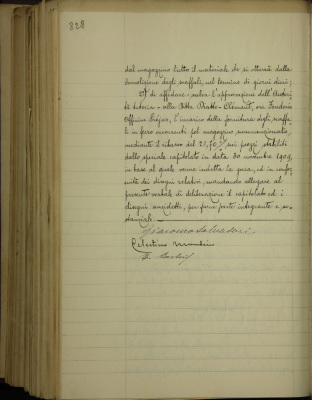 828
dal magazzino tutto il materiale che si otterrà dalla
demolizione degli scaffali, nel termine di giorni dieci;
2) di affidare, salva l'approvazione dell'Autori-
tà tutoria - alla Ditta Clément, ora Fonderia
Officine Fréjus, l'incarico della fornitura degli scaffa-
li in ferro occorrenti pel magazzino summenzionato,
mediante il ribasso del 21,50% sui prezzi stabiliti
dallo speciale capitolato in data 30 novembre 1909,
in base al quale venne indetta la gara, ed in confor-
mità dei disegni relativi, mandando allegare al
presente verbale di deliberazione il capitolato ed i
disegni anzidetti, per farne parte integrante e so-
stanziale. —
Giacomo Salvadori.
Celestino